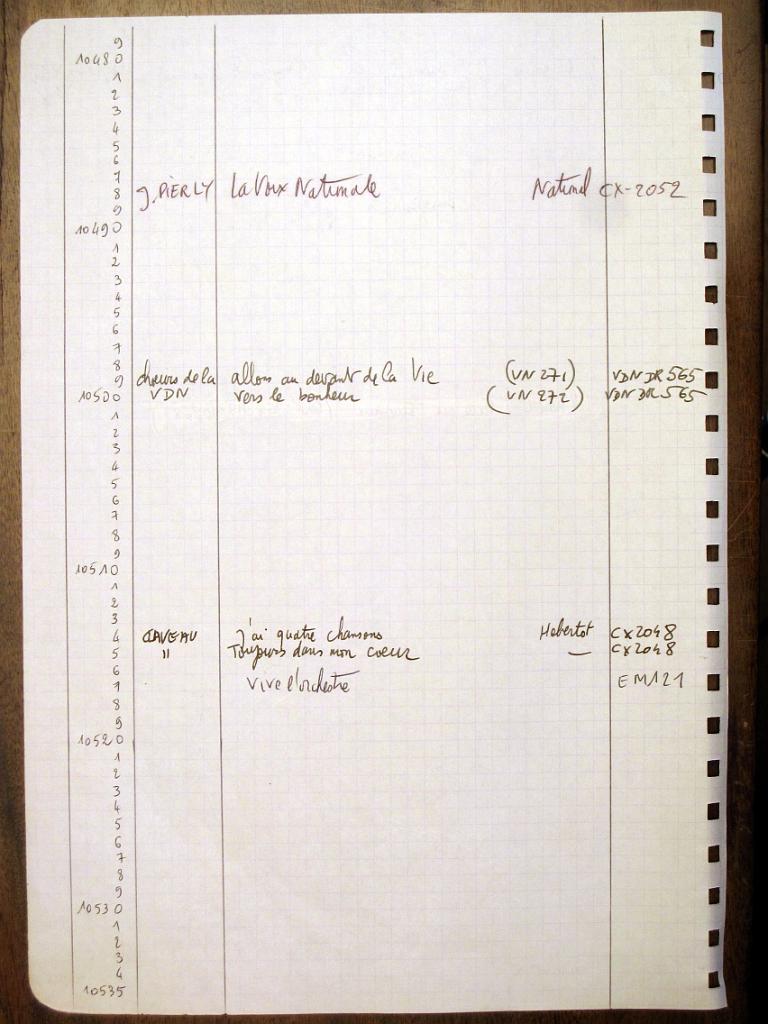 9
10480
1
2
3
4
5
6
7
8 J. PIERLY La Voix Nationale National CX-2052
9
10490
1
2
3
4
5
6
7
8
9 choeurs de la allons au devant de la Vie (VN 271) VDN DR 565
10500 VDN vers le bonheur (VN 272) VDN DR 565
1
2
3
4
5
6
7
8
9
10510
1
2
3
4 CLAVEAU J'ai quatre chansons Hebertot CX2048
5 " Toujours dans mon coeur — CX2048
6
7 Vive l'orchestre EM121
8
9
10520
1
2
3
4
5
6
7
8
9
10530
1
2
3
4
10535